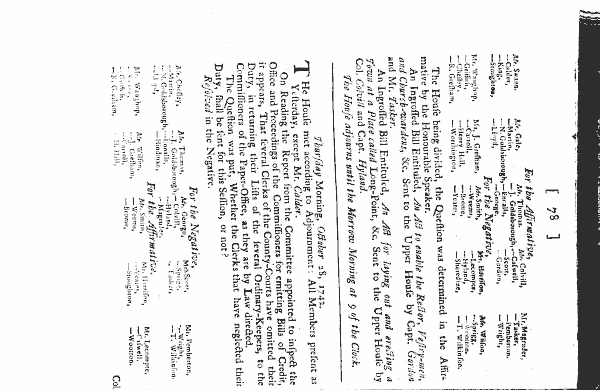 [ 78 ]
For the Affirmative,
Mr. Swann, Mr. Gale, Mr. Thomas, Mr. Colvill, Mr. Magruder,
—Calder, —Martin, —J. Goldsborough, —Calwell, —Tasker,
—King, —N. Goldsborough, —Ennalls, —Scott, —Pemberton,
—Stoughton, —Lloyd, —George, —Gordon, —Wright,
For the Negative,
Mr. Waughop, Mr. J. Gresham, Mr. Smith, Mr. Hamilton, Mr. Wilson,
—Griffith, —Carroll, —Weems, —Lecompte, —Sprigg,
—Chesley, —Henry Hall, —Hyland, —Wootton,
—R. Gresham, —Worthington, —T. Wilkinson.
The House being divided, the Question was determined in the Affirmative by the Honourable Speaker.
An Ingrossed Bill Entituled, An Act to enable the Rector, Vestry-men,
and Church-wardens, &c. Sent to the Upper House by Capt. Gordon
and Mr. Tasker.
An Ingrossed Bill Entituled, An Act for laying out and erecting a
Town at a Place called Long-Point, &c. Sent to the Upper House by
Col. Colvill and Capt. Hyland.
The House adjourns until the Morrow Morning at 9 of the Clock.
Thursday Morning, October 28, 1742.
THe House met according to Adjournment: All Members present as
Yesterday, except Mr. Calder.
On Reading the Report from the Committee appointed to inspect the
Office and Proceedings of the Commissioners for emitting Bills of Credit,
it appears, That several Clerks of the County-Courts have omitted their
Duty, in returning their Lists of the several Ordinary-Keepers, to the
Commissioners of the Paper-Office, as they are by Law directed.
The Question was put, Whether the Clerks that have neglected their
Duty, shall be sent for this Session, or not?
Rejected in the Negative.
For the Negative,
Mr. Chesley, Mr. Thomas, Mr. George, Mr. Scott, Mr. Pemberton,
—Martin, —J. Goldsborough, —Colvill, —Sprigg, —Wright,
—N. Goldsborough, —Ennalls, —Hyland, —Tasker, —T. Wilkinson.
—Lloyd, —Hindman, —Magruder,
For the Affirmative,
Mr. Waughop, Mr. Wilson, Mr. Smith, Mr. Hamilton, Mr. Lecompte,
—J. Gresham, —Weems, —Calwell,
—Griffith, —Carroll, —Stoughton, —Wootton.
—R. Gresham, —H. Hall,
Col.